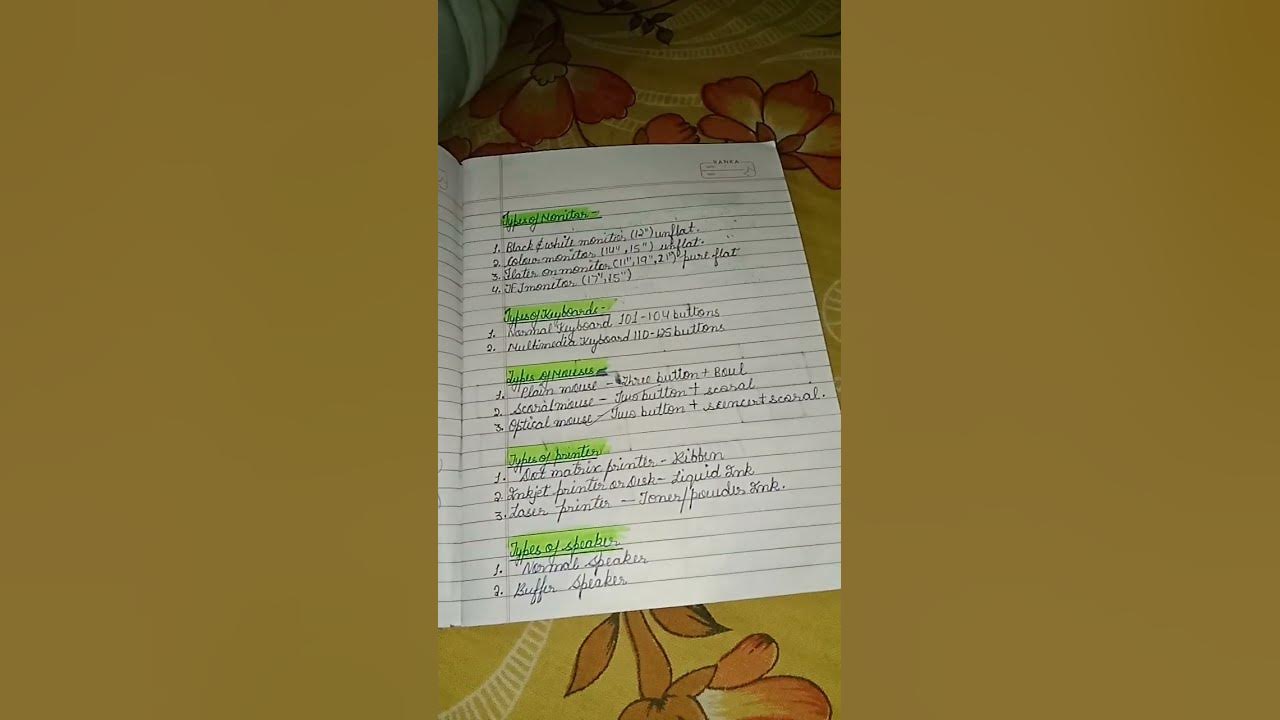 RANKA
Types of Monitor -
1. Black & white monitor (12") unflat.
2. Colour monitor (14", 15") unflat.
3. Flater on monitor (11", 19", 21") pure flat
4. TFT monitor (17", 15")
Types of Keyboards -
1. Normal Keyboard 101-104 buttons
2. Multimedia Keyboard 110-125 buttons
Types of Mouses -
1. Plain mouse - Three button + Boul
2. Scoral mouse - Two button + scoral
3. Optical mouse - Two button + scoral.
Types of printer
1. Dot matrix printer - Ribbin
2. Inkjet printer or Desk - Liquid Ink
3. Laser printer - Toner/powder Ink.
Types of speaker
1. Normal speaker
2. Buffer speaker